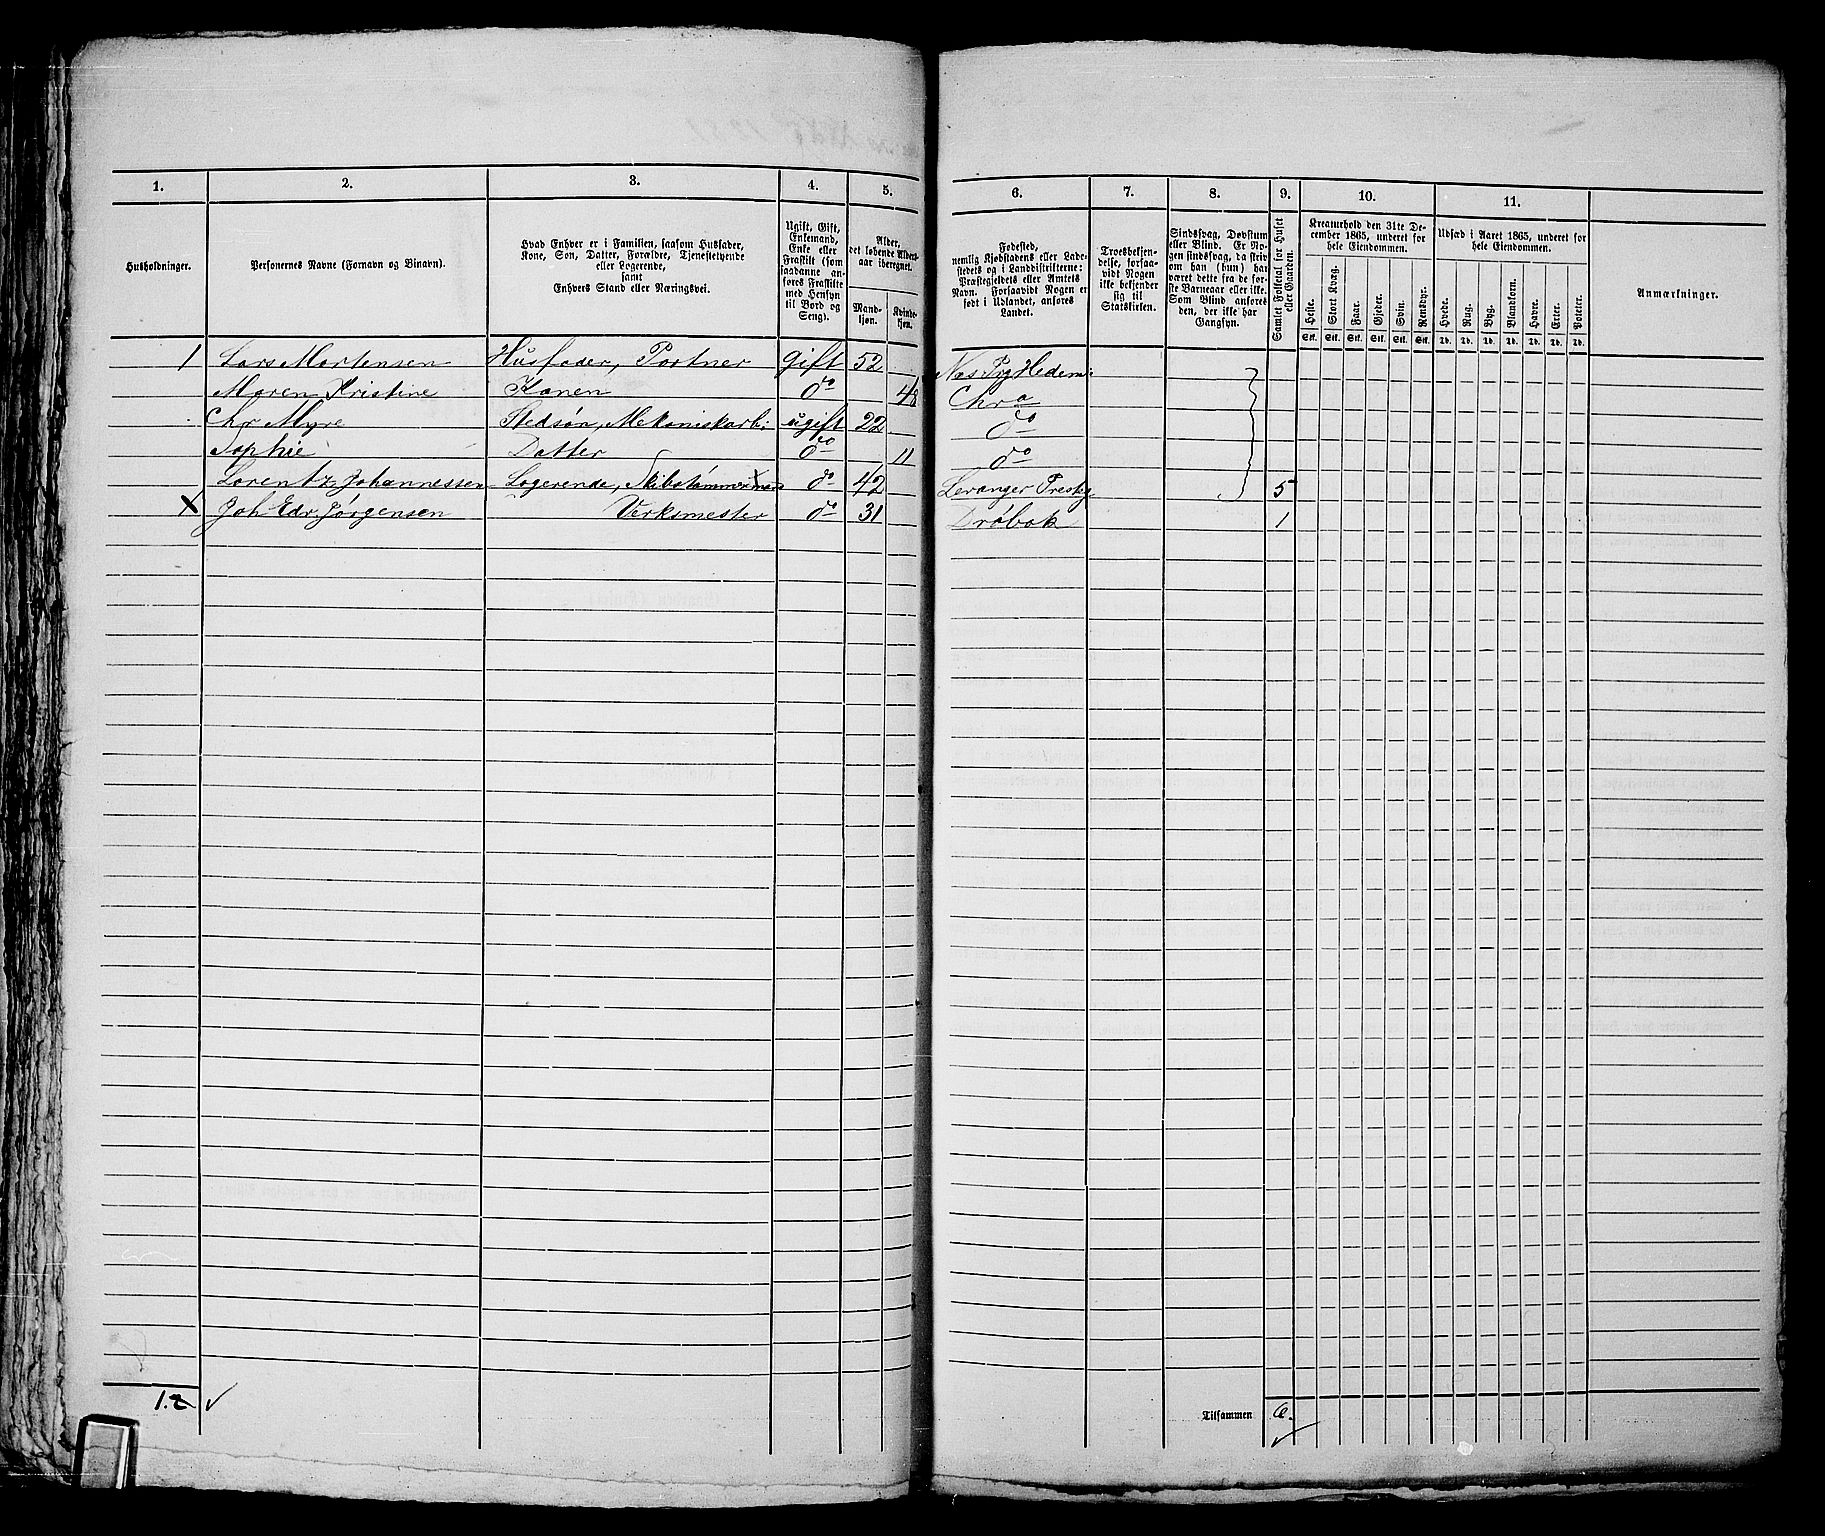 1.
2.
3.
4.
5.
6.
7.
8.
9.
10.
11.
Husholdninger.
Personernes Navne (Fornavn og Binavn).
Hvad Enhver er i Familien, saasom Husfader,
Kone, Søn, Datter, Forældre, Tjenestetyende
eller Logerende,
samt
Enhvers Stand eller Næringsvei.
Ugift, Gift,
Enkemand,
Enke eller
Fraskilt (som
saadanne an-
føres Fraskilte
med Hensyn
til Bord og
Seng).
Alder,
det løbende Alders-
aar iberegnet.
Mand-
kjøn.
Kvinde-
kjøn.
Fødested,
nemlig Kjøbstadens eller Lade-
stedets og i Landdistrikterne:
Præstegjeldets eller Amtets
Navn. Forsaavidt Nogen er
født i Udlandet, anføres
Landet.
Troesbekjen-
delse, forsaa-
vidt Nogen
ikke bekjender
sig til
Statskirken.
Sindssvag, Døvstum
eller Blind. Er No-
gen sindssvag, da skriv
om han (hun) har
været dette fra de før-
ste Barneaar eller ikke.
Som Blind anføres
den, der ikke har
Gangsyn.
Samlet Folketal for Huset
eller Gaarden.
Kreaturhold den 31te De-
cember 1865, underet for
hele Eiendommen.
Heste.
Stort Kvæg.
Faar.
Gjeder.
Sviin.
Rensdyr.
Stk. Stk. Stk. Stk. Stk. Stk.
Udsæd i Aaret 1865, underet for
hele Eiendommen.
Hvede.
Rug.
Byg.
Blandkorn.
Havre.
Erter.
Poteter.
Td. Td. Td. Td. Td. Td. Td.
Anmærkninger.
1 Lars Mortensen Husfader, Portner Gift 52 Næs Prg Hedem:
Maren Kristine Konen do 48 Chra
Chr Myre Stedsøn, Mekaniskarb: ugift 22 do
Sophie Datter do 11 do
Lorentz Johannessen Logerende, Skibstømmermand do 42 Levanger Prestg 5
X Joh Edv. Jørgensen Verksmester do 31 Drøbak 1
1.2 ✓
Tilsammen 6. ✓